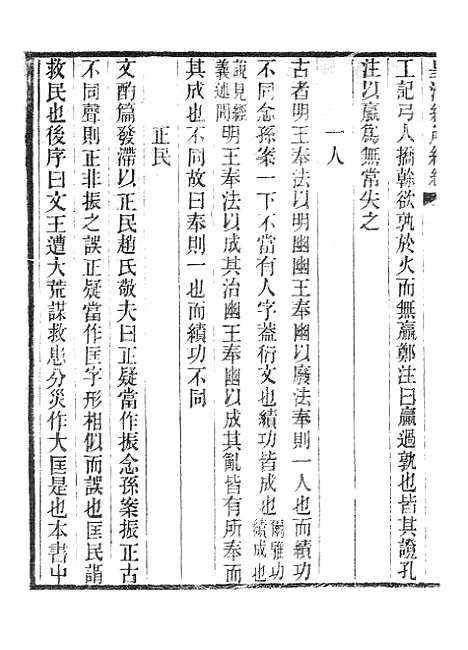 工記弓人撟幹欲孰於火而無贏鄭注曰贏過孰也皆其證孔
注以贏爲無常失之
一人
古者明王奉法以明幽幽王奉幽以廢法奉則一人也而績功
不同念孫案一下不當有人字蓋衍文也績功皆成也爾雅功績成也
說見經義述聞明王奉法以成其治幽王奉幽以成其亂皆有所奉而
其成也不同故曰奉則一也而績功不同
正民
文酌篇發滯以正民趙氏敬夫曰正疑當作振念孫案振正古
不同聲則正非振之誤正疑當作匡字形相似而誤也匡民謂
救民也後序曰文王遭大荒謀救患分災作大匡是也本書中